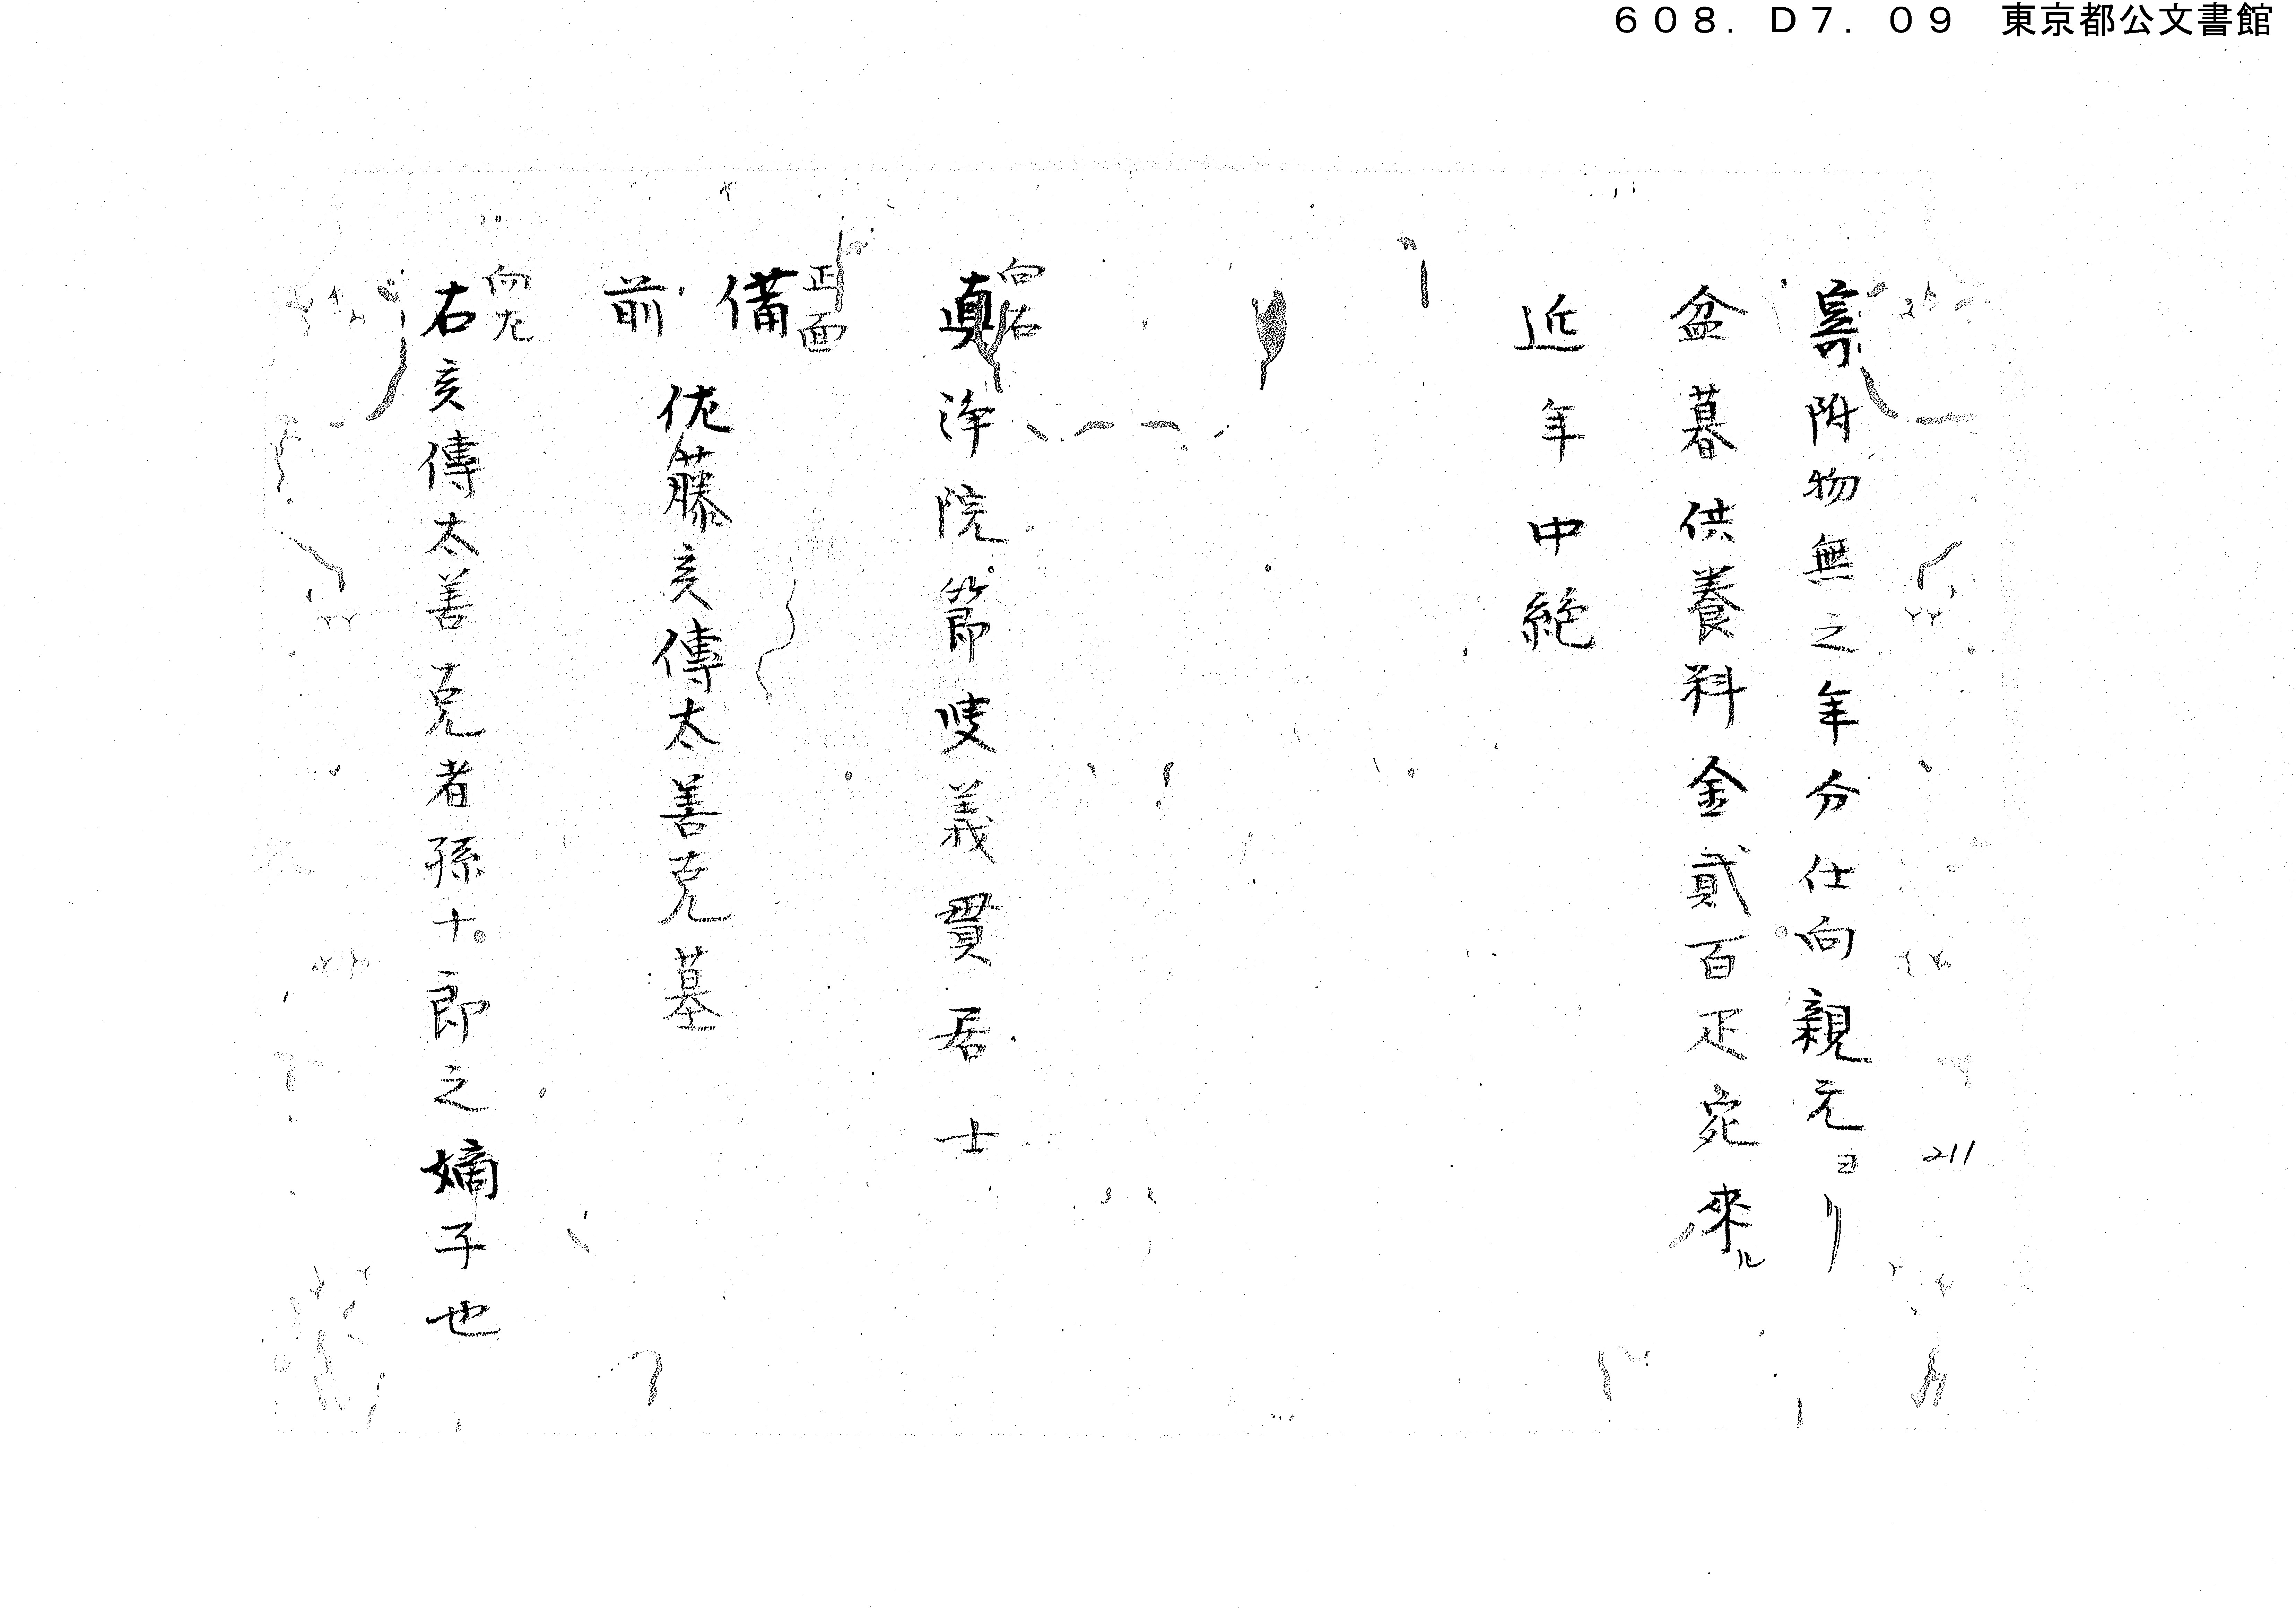 ６０８．Ｄ７．０９　東京都公文書館
寄附物無之年分仕向親元ヨリ
211
盆暮供養料金貳百疋宛來ル
近年中絶
向右
真浄院節叟義貫居士
正面
備前
佐藤亥傳太善克墓
向左
右亥傳太善克者孫十郎之嫡子也